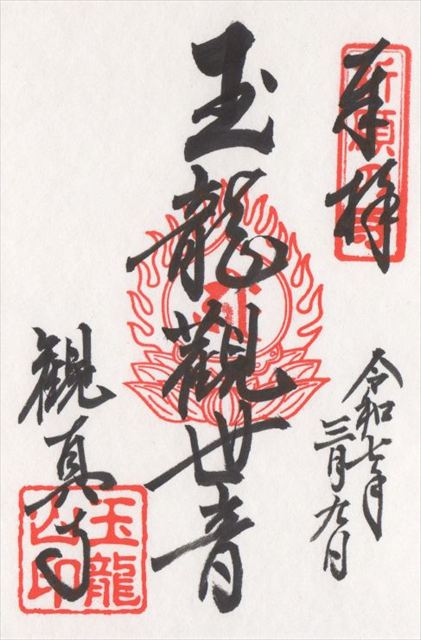 奉拝
令和七年
三月九日
玉龍觀世音
観真寺
玉龍
山印